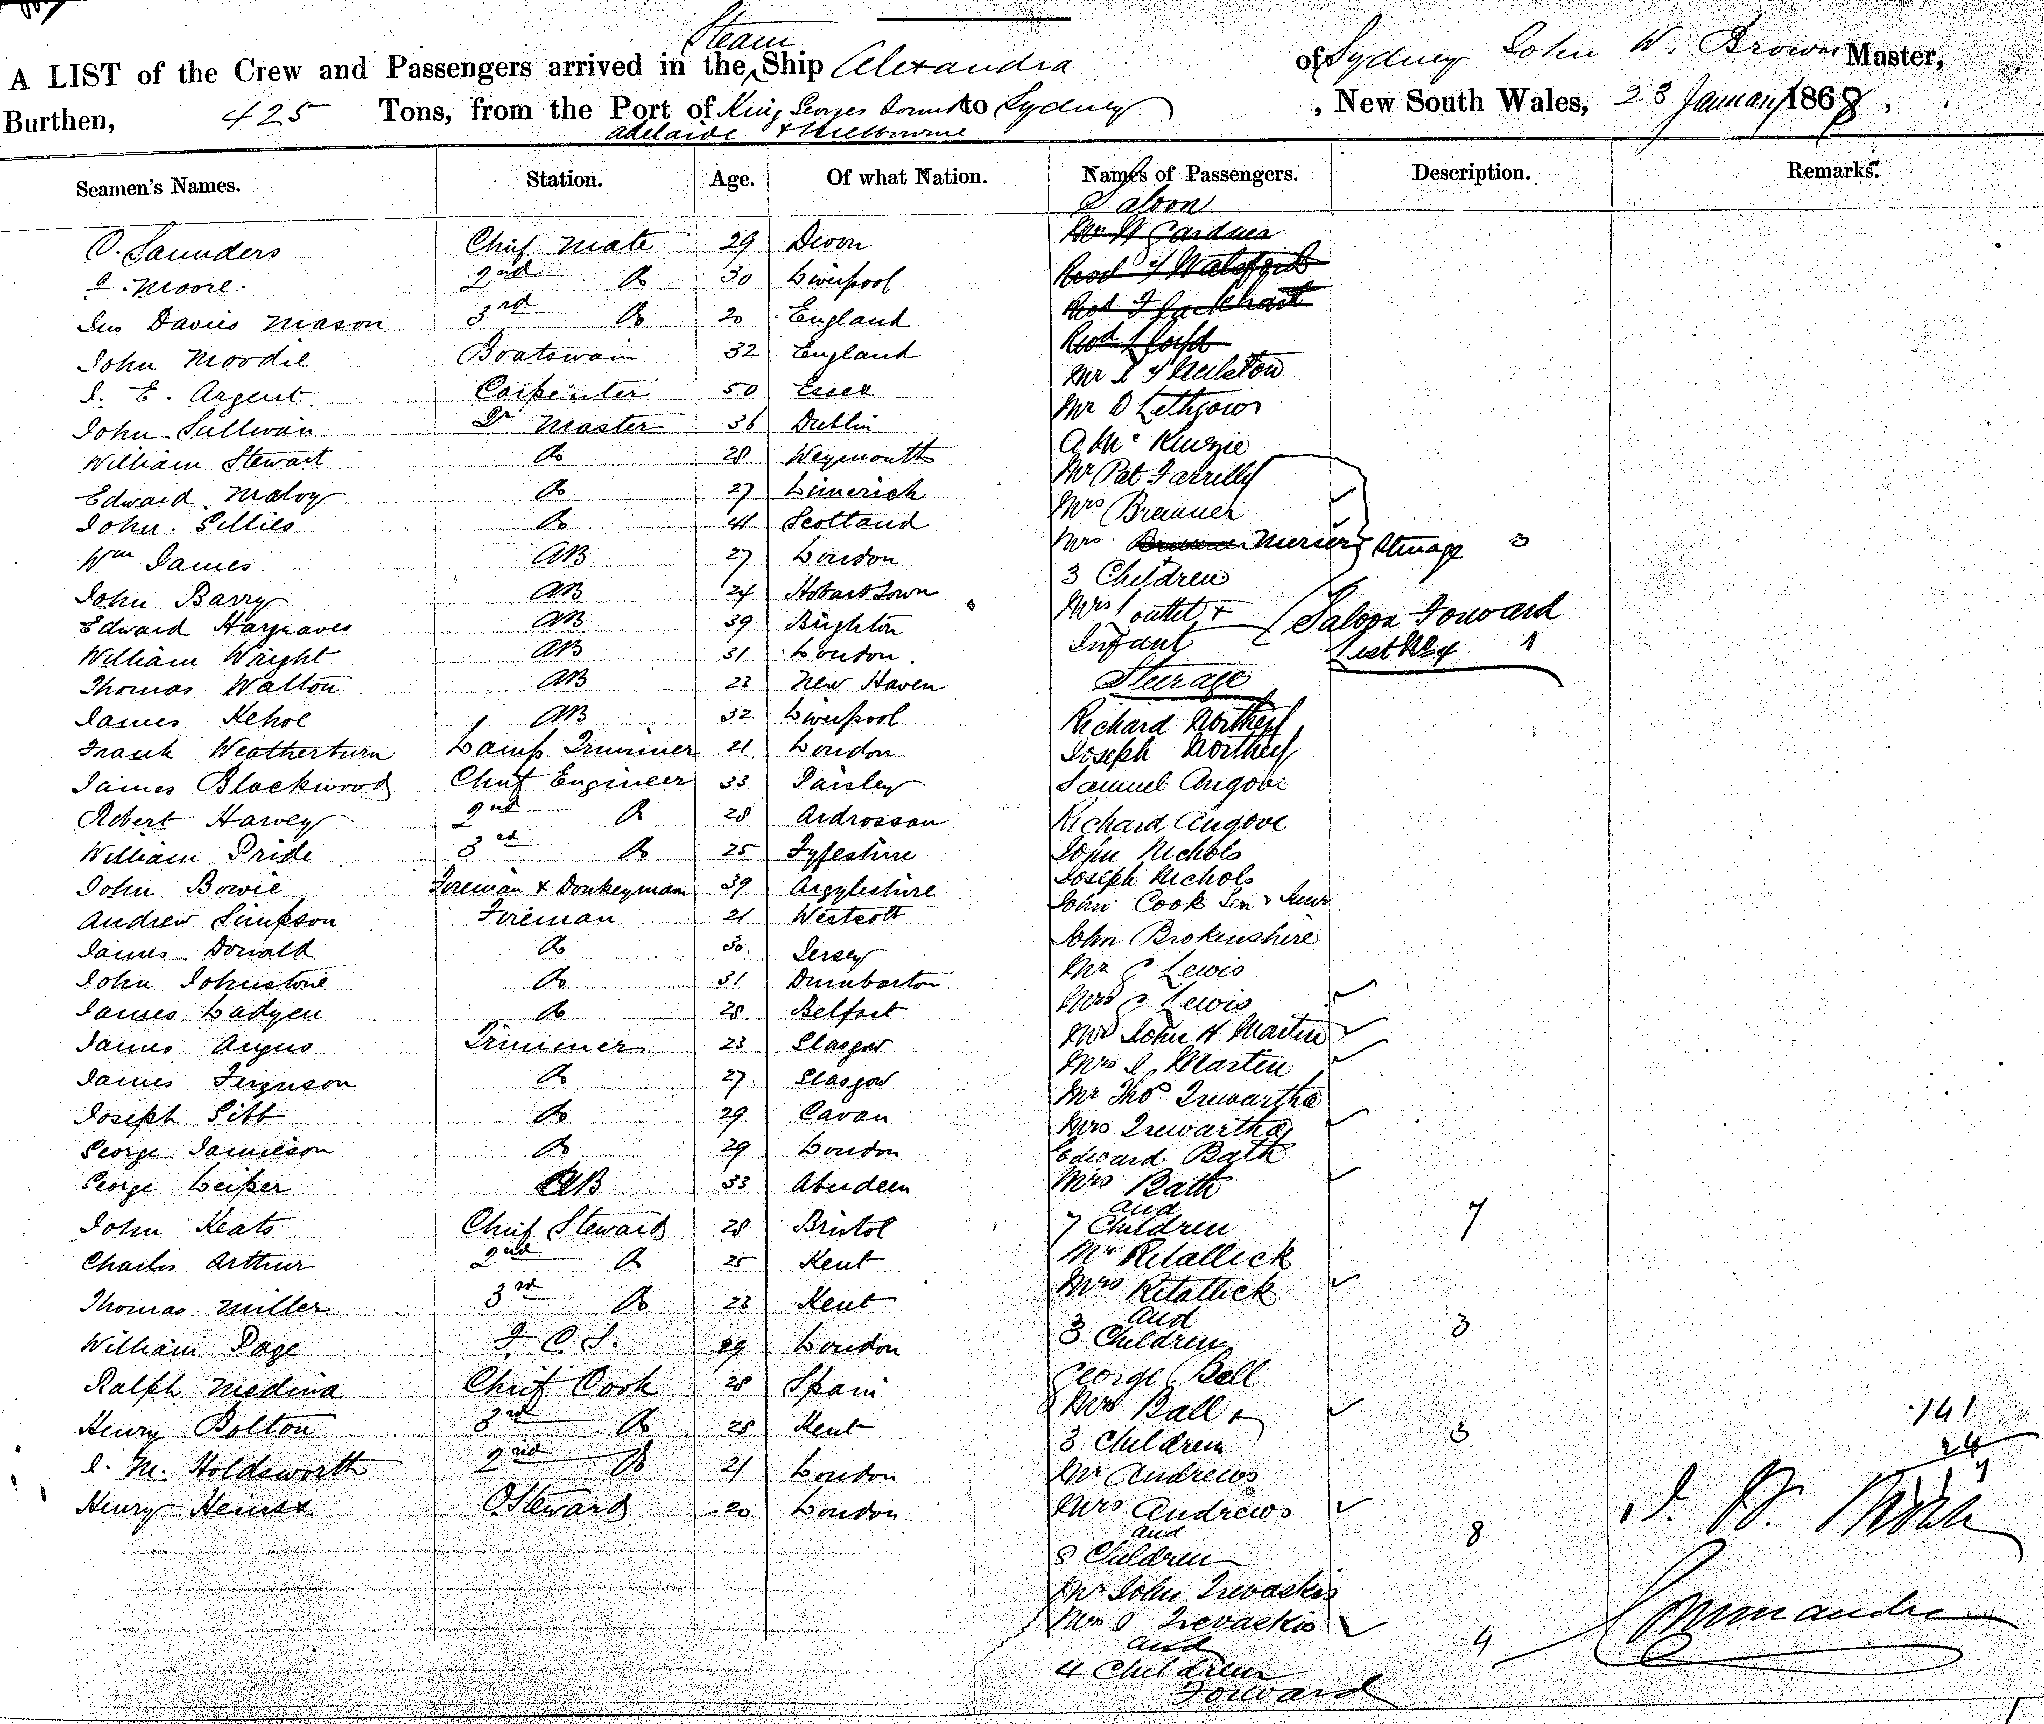 Steam
A LIST of the Crew and Passengers arrived in the Ship Alexandra of Sydney John W. Brown Master,
Burthen, 425 Tons, from the Port of King Georges Sound to Sydney, New South Wales, 23 January 1868.
Adelaide & Melbourne
Seamen's Names. Station. Age. Of what Nation. Names of Passengers. Description. Remarks.
Saloon
O. Saunders Chief Mate 29 Devon Mr W Gardner
J. Moore 2nd Do 30 Liverpool
Jno Davies Mason 3rd Do 20 England
John Moodie Boatswain 32 England
J. E. Argent Carpenter 50 Essex Mr
John Sullivan Qr Master 36 Dublin Mr D Lethgow
William Stewart Do 28 Weymouth A McKenzie
Edward Maloy Do 27 Limerick Mr Pat Farrelly
John Gillies Do 41 Scotland Mrs
Wm James AB 27 London Mrs Mercer Steerage 3
3 Children
John Barry AB 24 Hobart Town Mrs
Edward Hargraves AB 39 Brighton Infant Saloon Forward
William Wright AB 31 London
Thomas Walton AB 23 New Haven Steerage
James Kehoe AB 32 Liverpool Richard Northey
Frank Weatherturn Lamp Trimmer 21 London Joseph Northey
James Blackwood Chief Engineer 33 Paisley Samuel Angove
Robert Harvey 2nd Do 28 Ardrossan Richard Angove
William Pride 3rd Do 25 Fyfeshire John Nichols
John Bowie Fireman & Donkeyman 39 Argyleshire Joseph Nichols
Andrew Simpson Fireman 21 John Cook Sen & Junr
James Donald Do 30 Jersey John Brokenshire
John Johnstone Do 31 Dumbarton Mr J Lewis
James Ladyen Do 28 Belfast Mrs J Lewis
James Angus Trimmer 23 Glasgow Mr John H Martin
James Ferguson Do 27 Glasgow Mrs J. Martin
Joseph Gibb Do 29 Cavan Mr Thos Trewartha
George Jamieson Do 29 London Mrs Trewartha
Edward Bath
George Leiper AB 33 Aberdeen Mrs Bath
and
John Keats Chief Steward 28 Bristol 7 Children 7
Charles Arthur 2nd Do 25 Kent Mr Retallick
Thomas Miller 3rd Do 23 Kent Mrs Retallick
and
William Page F. C. S. 29 London 3 Children 3
Ralph Medina Chief Cook 28 Spain George Ball
Mrs Ball &
Henry Bolton 3rd Do 28 Kent 3 Children 3
J. M. Holdsworth 2nd Do 21 London Mr Andrews
Henry O Steward 20 London Mrs Andrews
and
8 Children 8
Mr John Trevaskis
Mrs J Trevaskis
and
4 Children 4
Forward
141
24
Commander